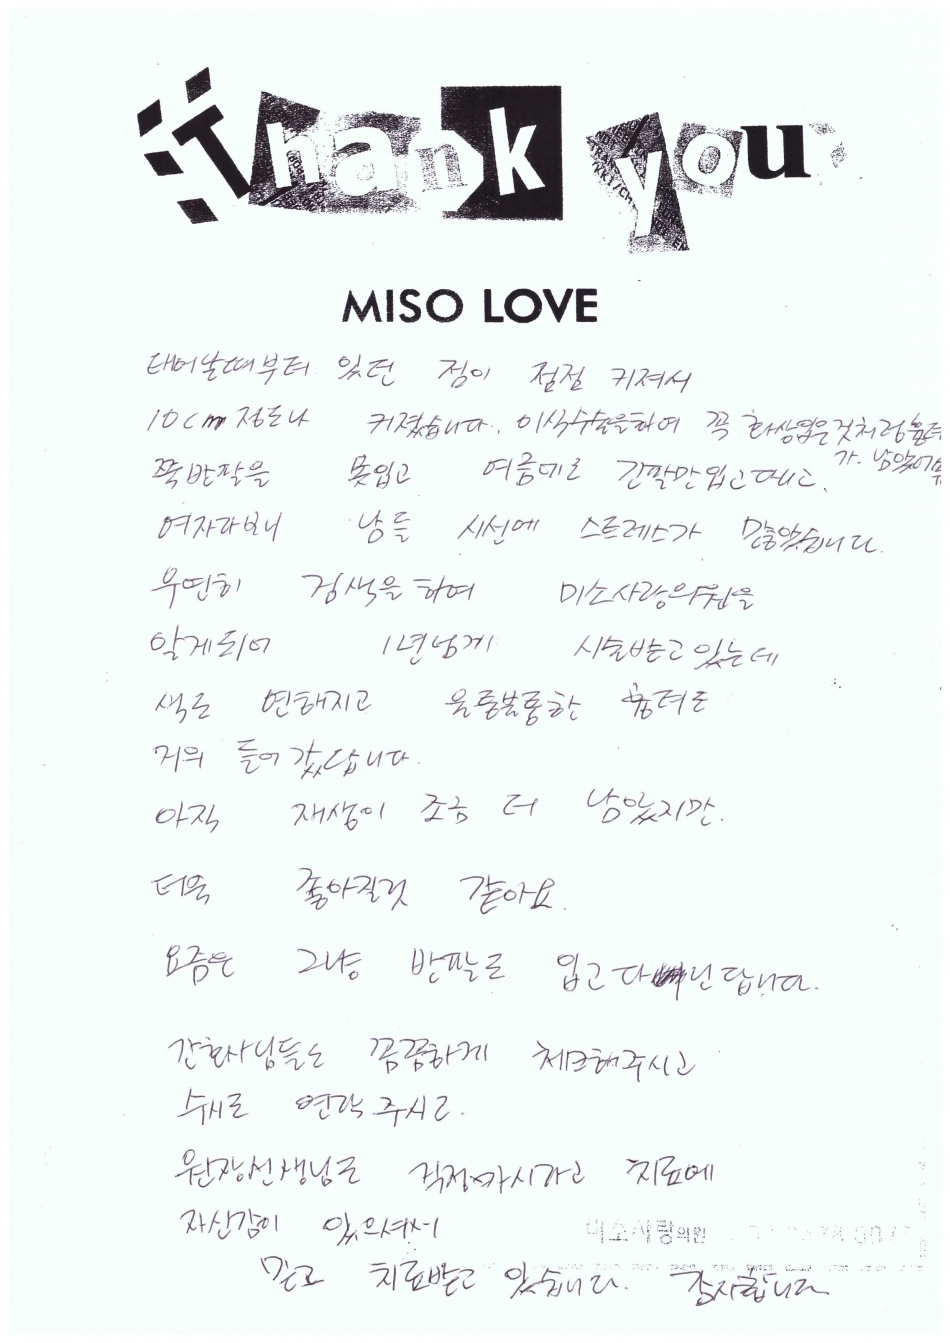 Thank you
MISO LOVE
태어날때부터 있던 점이 점점 커져서
10cm 정도나 커졌습니다. 이식수술을하여 꼭 화상입은것처럼 흉터
가. 남았어
쭉 반팔을 못입고 여름에도 긴팔만 입고 다니고,
여자다보니 남들 시선에 스트레스가 많았습니다.
우연히 검색을 하여 미소사랑의원을
알게되어 1년넘게 시술받고 있는데
색도 연해지고 울퉁불퉁한 흉터도
거의 들어갔답니다.
아직 재생이 조금 더 남았지만.
더욱 좋아질것 같아요.
요즘은 그냥 반팔도 입고 다닌답니다.
간호사님들도 꼼꼼하게 체크해주시고
수시로 연락 주시고.
원장선생님도 걱정마시라고 치료에
자신감이 있으셔서
미소사랑의원
믿고 치료받고 있습니다. 감사합니다